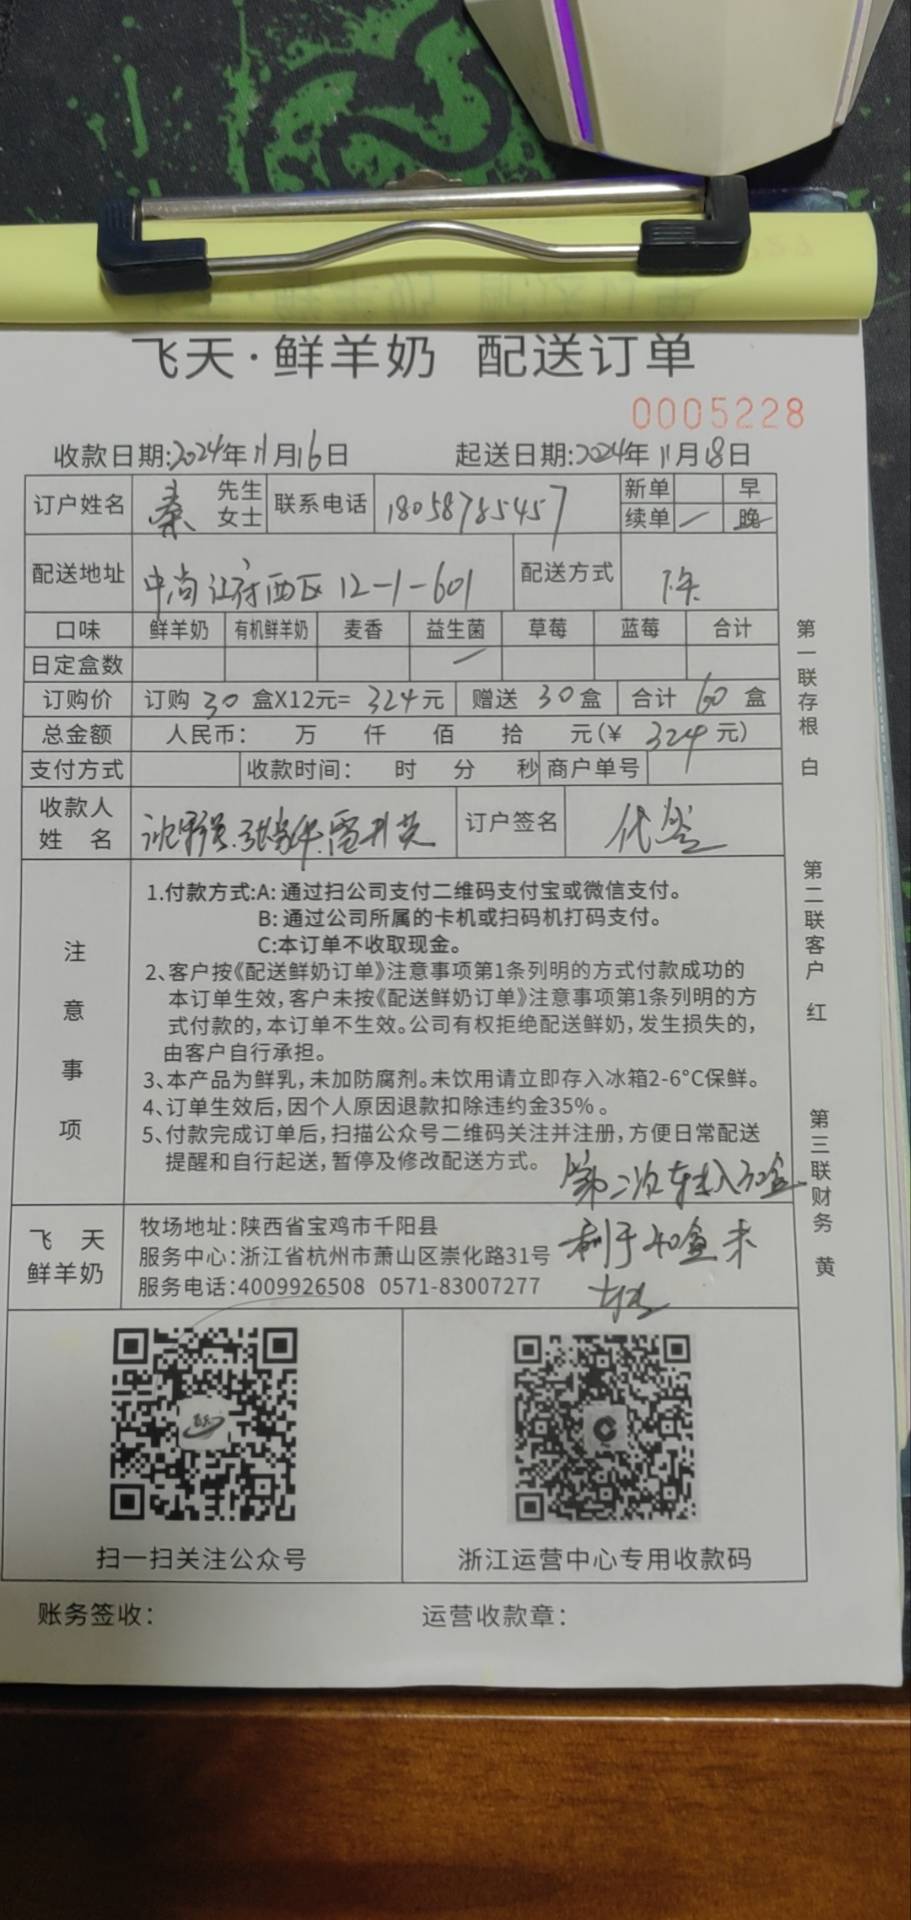 飞天·鲜羊奶 配送订单
0005228
收款日期:2024年11月16日 起送日期:2024年11月18日
订户姓名 秦 先生 女士 联系电话 18058785457 新单 早
续单 晚
配送地址 中尚江府西区12-1-601 配送方式
口味 鲜羊奶 有机鲜羊奶 麦香 益生菌 草莓 蓝莓 合计
日定盒数
订购价 订购 30 盒X12元= 324元 赠送 30盒 合计 60 盒
总金额 人民币: 万 仟 佰 拾 元(¥ 324元)
支付方式 收款时间: 时 分 秒 商户单号
收款人
姓 名 订户签名 代签
注意事项
1.付款方式:A: 通过扫公司支付二维码支付宝或微信支付。
B: 通过公司所属的卡机或扫码机打码支付。
C:本订单不收取现金。
2、客户按《配送鲜奶订单》注意事项第1条列明的方式付款成功的
本订单生效,客户未按《配送鲜奶订单》注意事项第1条列明的方
式付款的,本订单不生效。公司有权拒绝配送鲜奶,发生损失的,
由客户自行承担。
3、本产品为鲜乳,未加防腐剂。未饮用请立即存入冰箱2-6°C保鲜。
4、订单生效后,因个人原因退款扣除违约金35%。
5、付款完成订单后,扫描公众号二维码关注并注册,方便日常配送
提醒和自行起送,暂停及修改配送方式。
第二次转入30盒
剩于40盒未
转
飞 天
鲜羊奶
牧场地址:陕西省宝鸡市千阳县
服务中心:浙江省杭州市萧山区崇化路31号
服务电话:4009926508 0571-83007277
扫一扫关注公众号 浙江运营中心专用收款码
账务签收: 运营收款章:
第一联存根 白
第二联客户 红
第三联财务 黄